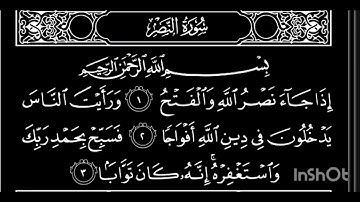 سُورَةُ النَّصْرِ
بِسْمِ اللَّهِ الرَّحْمَٰنِ الرَّحِيمِ
إِذَا جَآءَ نَصْرُ اللَّهِ وَالْفَتْحُ ١ وَرَأَيْتَ النَّاسَ
يَدْخُلُونَ فِي دِينِ اللَّهِ أَفْوَاجًا ٢ فَسَبِّحْ بِحَمْدِ رَبِّكَ
وَاسْتَغْفِرْهُ ۚ إِنَّهُۥ كَانَ تَوَّابًۢا ٣
InShOt